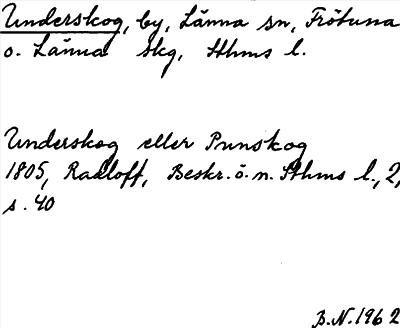 Underskog, by, Länna sn, Frötuna
o. Länna skg, Sthms l.
Underskog eller Prunskog
1805, Radloff, Beskr. ö. n. Sthms l., 2,
s. 40
B.N. 1962